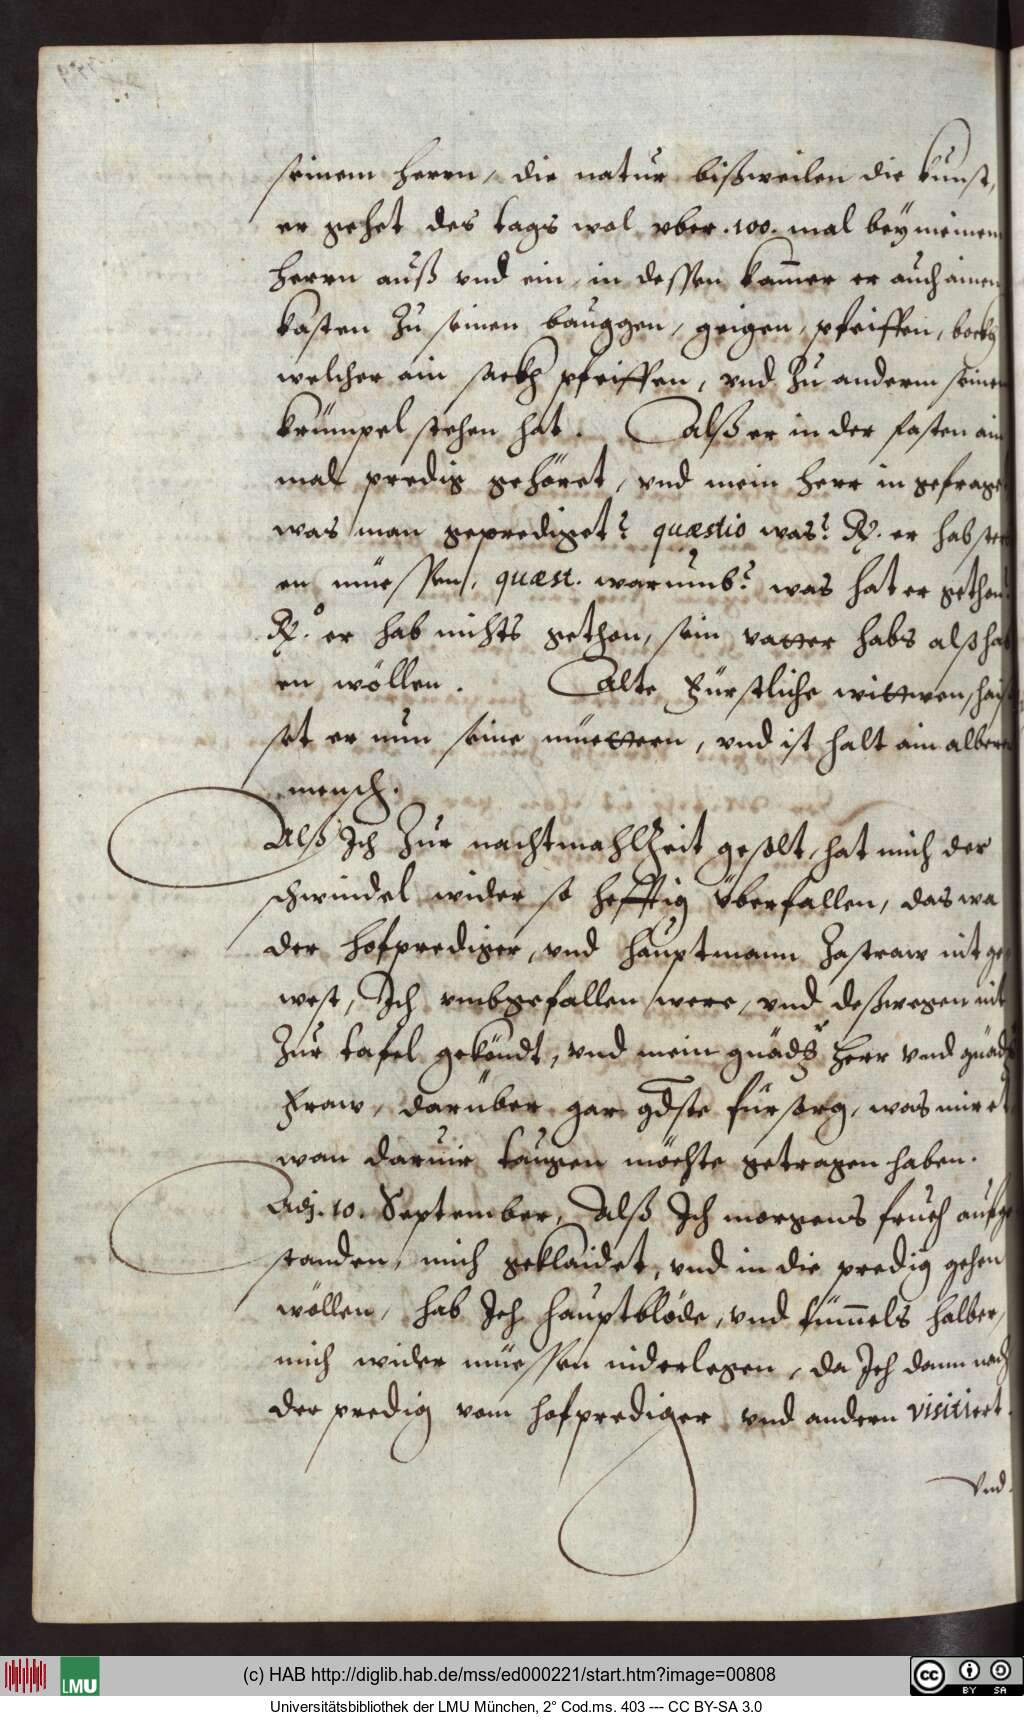 seinem herrn, die natur bißweilen die kunst,
er gehet des tags wol vber .100. mal bey meinem
herrn auß vnd ein, in dessen kam̄er er auch ainen
kasten zu seinen bauggen, geigen, pfeiffen, bockh
welcher ain sackh pfeiffen, vnd zu anderm seinem
krümpel stehen hat. Alß er in der fasten ain
mal predig gehöret, vnd mein herr in gefraget
was man geprediget? quæstio was? R. er hab ster
en müessen, quæst. warumb? was hat er gethon?
R. er hab nichts gethon, sein vatter habs alß hab
en wöllen. Alte Fürstliche wittwen, hais
set er nun seine müettern, vnd ist halt ain alberer
mensch.
Alß Ich zur nachtmahlzeit gesolt, hat mich der
schwindel wider so hefftig überfallen, das wa
der hofprediger, vnd hauptmann Zastraw nit ge
west, Ich vmbgefallen were, vnd deßwegen nit
zur tafel geköndt, vnd mein gnädgr herr vnd gnädge
Fraw, darüber gar gdste fürsorg, was mir et
wan daruir taugen möchte getragen haben.
Adj. 10. September, Alß Ich morgens frueh aufge
standen, mich geklaidet, vnd in die predig gehen
wöllen, hab Ich hauptblöde, vnd tüm̄els halber,
mich wider müessen niderlegen, da Ich dann nach
der predig vom hofprediger vnd andern visitiert.
Vnd.
(c) HAB http://diglib.hab.de/mss/ed000221/start.htm?image=00808
LMU
cc BY SA
Universitätsbibliothek der LMU München, 2° Cod.ms. 403 --- CC BY-SA 3.0